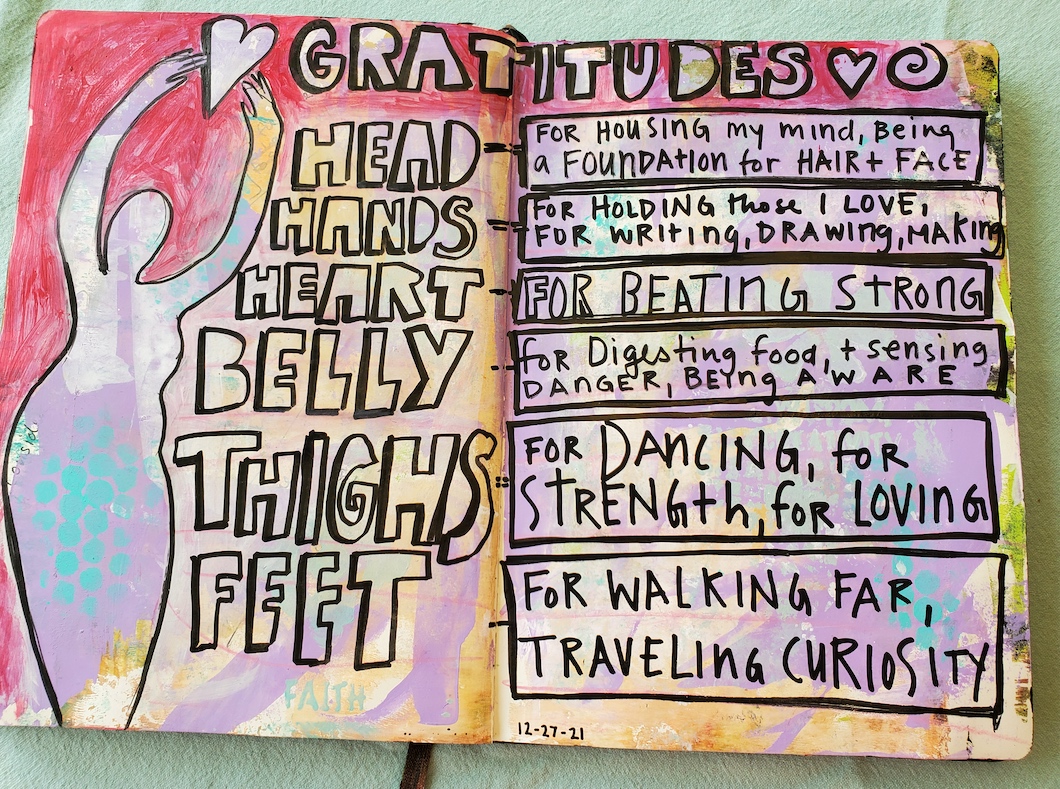 GRATITUDES
HEAD
FOR HOUSING my mind, Being
a FOUNDATION for HAIR + FACE
HANDS
FOR HOLDING those I LOVE,
FOR WRITING, DRAWING, MAKING
HEART
FOR BEATING STRONG
BELLY
for Digesting food, + sensing
DANGER, BEING AWARE
THIGHS
FOR DANCING, for
STRENGTH, for LOVING
FEET
FOR WALKING FAR,
TRAVELING CURIOSITY
FAITH
12-27-21